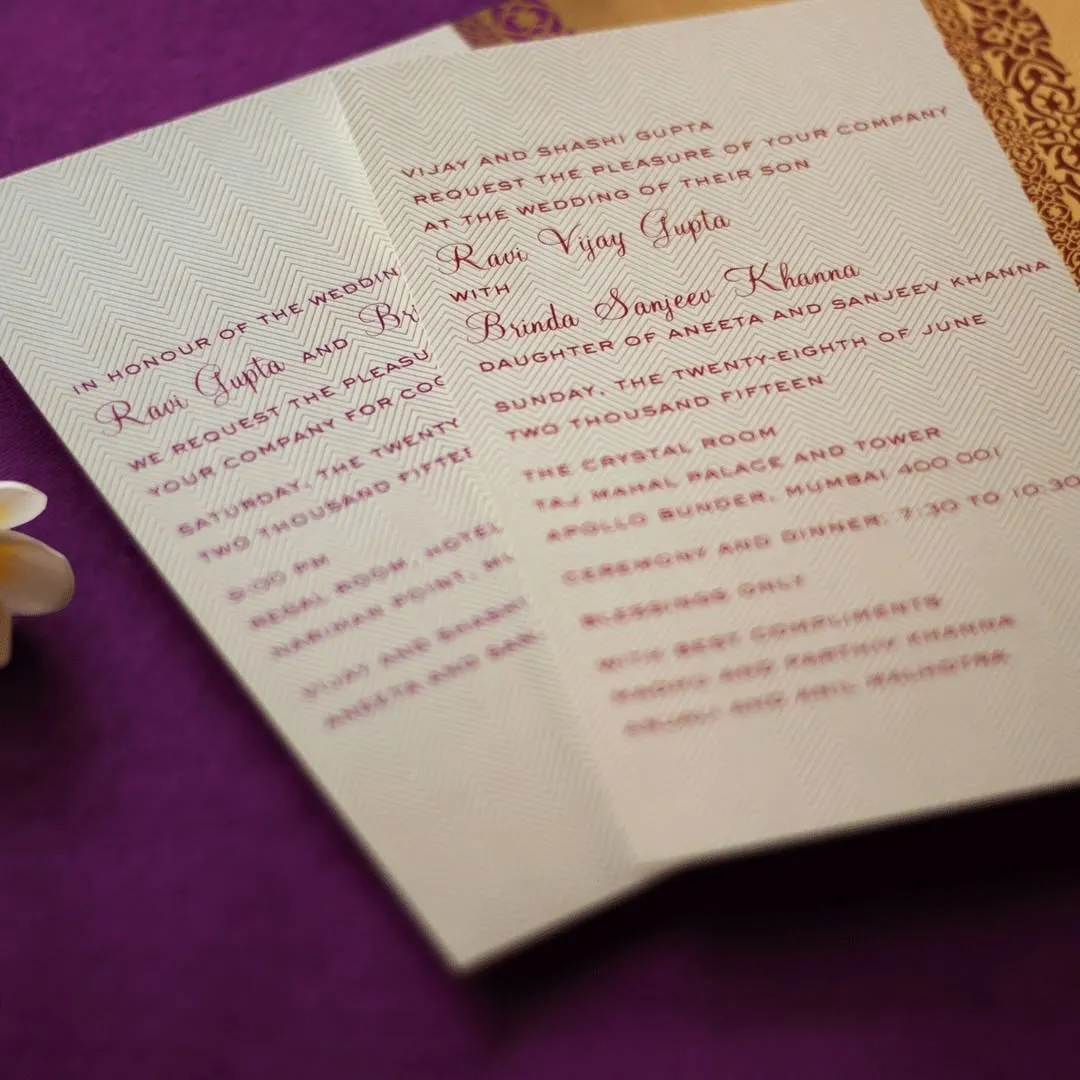 IN HONOUR OF THE WEDDIN
Ravi Gupta AND Bri
WE REQUEST THE PLEASU
YOUR COMPANY FOR COC
SATURDAY, THE TWENTY
TWO THOUSAND FIFTEE
9:00 PM
REGAL ROOM, HOTEL
NARIMAN POINT, MU
VIJAY AND SHASHI
ANEETA AND SAN
VIJAY AND SHASHI GUPTA
REQUEST THE PLEASURE OF YOUR COMPANY
AT THE WEDDING OF THEIR SON
Ravi Vijay Gupta
WITH
Brinda Sanjeev Khanna
DAUGHTER OF ANEETA AND SANJEEV KHANNA
SUNDAY, THE TWENTY-EIGHTH OF JUNE
TWO THOUSAND FIFTEEN
THE CRYSTAL ROOM
TAJ MAHAL PALACE AND TOWER
APOLLO BUNDER, MUMBAI 400 001
CEREMONY AND DINNER: 7:30 TO 10:30
BLESSINGS ONLY
WITH BEST COMPLIMENTS
AND PARTHIV KHANNA
AND ANIL MALHOTRA